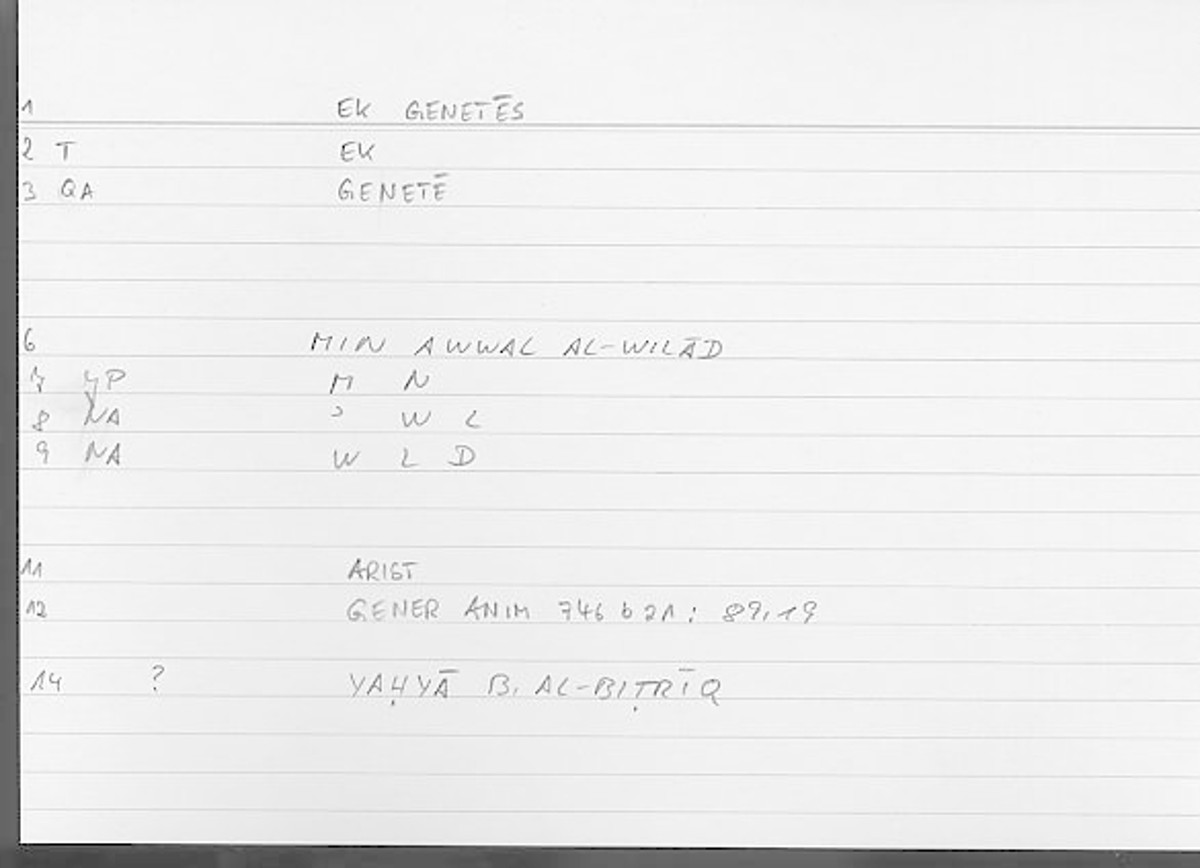 1 EK GENETĒS
2 T EK
3 QA GENETĒ
6 MIN AWWAL AL-WILĀD
7 YP M N
8 NA ʾ W L
9 NA W L D
11 ARIST
12 GENER ANIM 746 b 21 : 89,19
14 ? YAḤYĀ B. AL-BIṬRĪQ